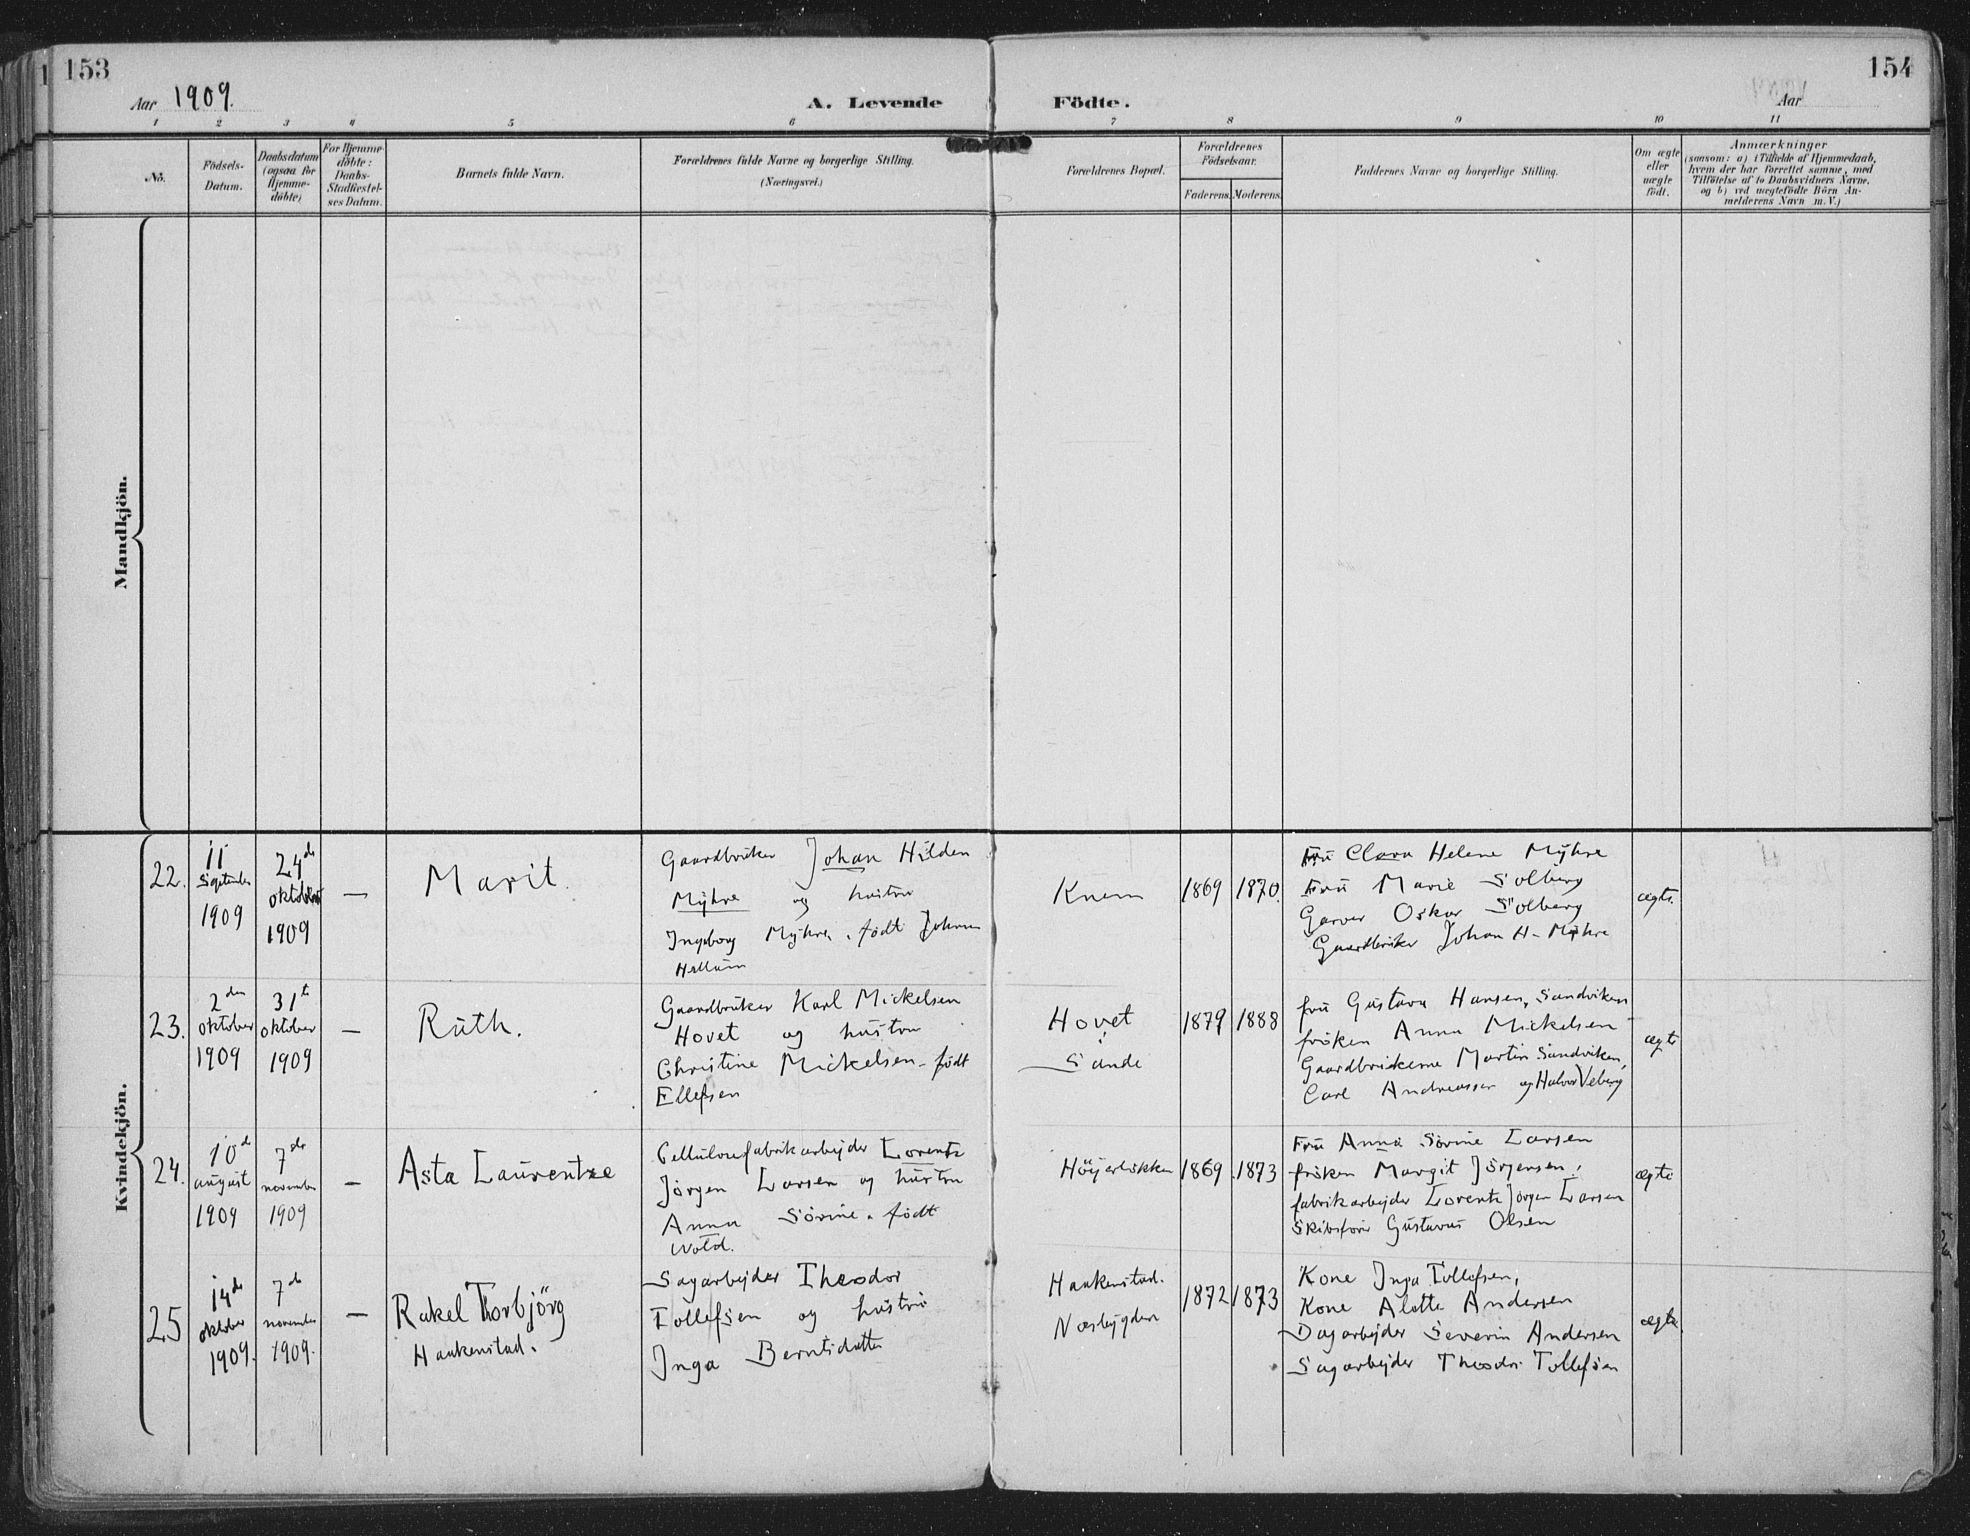 153
154
Aar 1909.
A. Levende Födte.
Aar
1 2 3 4 5 6 7 8 9 10 11
No.
Födsels-
Datum.
Daabsdatum
(ogsaa for
Hjemme-
döbte)
For Hjemme-
döbte:
Daabs-
Stadfæstel-
ses Datum.
Barnets fulde Navn.
Forældrenes fulde Navne og borgerlige Stilling.
(Næringsvei.)
Forældrenes Bopæl.
Forældrenes
Födselsaar.
Faderens. Moderens.
Faddernes Navne og borgerlige Stilling.
Om ægte
eller
uægte
födt.
Anmærkninger
(saasom: a) i Tilfælde af Hjemmedaab,
hvem der har forrettet samme, med
Tilföielse af to Daabsvidners Navne,
og b) ved uægtefödte Börn An-
melderens Navn m. V.)
Mandkjön.
Kvindekjön.
22.
11
September
1909
24de
oktober
1909
—
Marit.
Gaardbruker Johan Hilden
Myhre og hustru
Ingeborg Myhre, født
Knem
1869
1870.
Fru Clara Helene Myhre
Fru Marie Solberg
Garver Oskar Solberg
Gaardbruker Johan H. Myhre
ægte.
23.
2den
oktober
1909
31te
oktober
1909
—
Ruth.
Gaardbruker Karl Mickelsen
Hovet og hustru
Christine Mickelsen, født
Ellefsen
Hovet
Sande
1879
1888
fru Gustava Hansen, Sandviken
frøken Anna Mickelsen
Gaardbrukerne Martin Sandviken,
Carl Andreassen og Halvor Veberg
ægte
24.
10de
august
1909
7de
november
1909
—
Asta Laurentze
Cellulosefabrikarbejder Lorentz
Jörgen Larsen og hustru
Anna Sörine, født
Wold.
Höyerløkken
1869
1873
Fru Anna Sørine Larsen
frøken Margit Jörgensen,
fabrikarbejder Lorentz Jörgen Larsen
Skibsfører Gustavus Olsen
ægte
25
14de
oktober
1909.
7de
november
1909.
—
Rakel Torbjörg
Haakenstad.
Sagarbejder Theodor
Tollefsen og hustru
Inga Berntsdatter
Haakenstad.
Næsbygden
1872
1873
Kone Inga Tollefsen,
Kone Alette Andersen
Dagarbejder Severin Andersen
Sagarbejder Theodor Tollefsen
ægte.